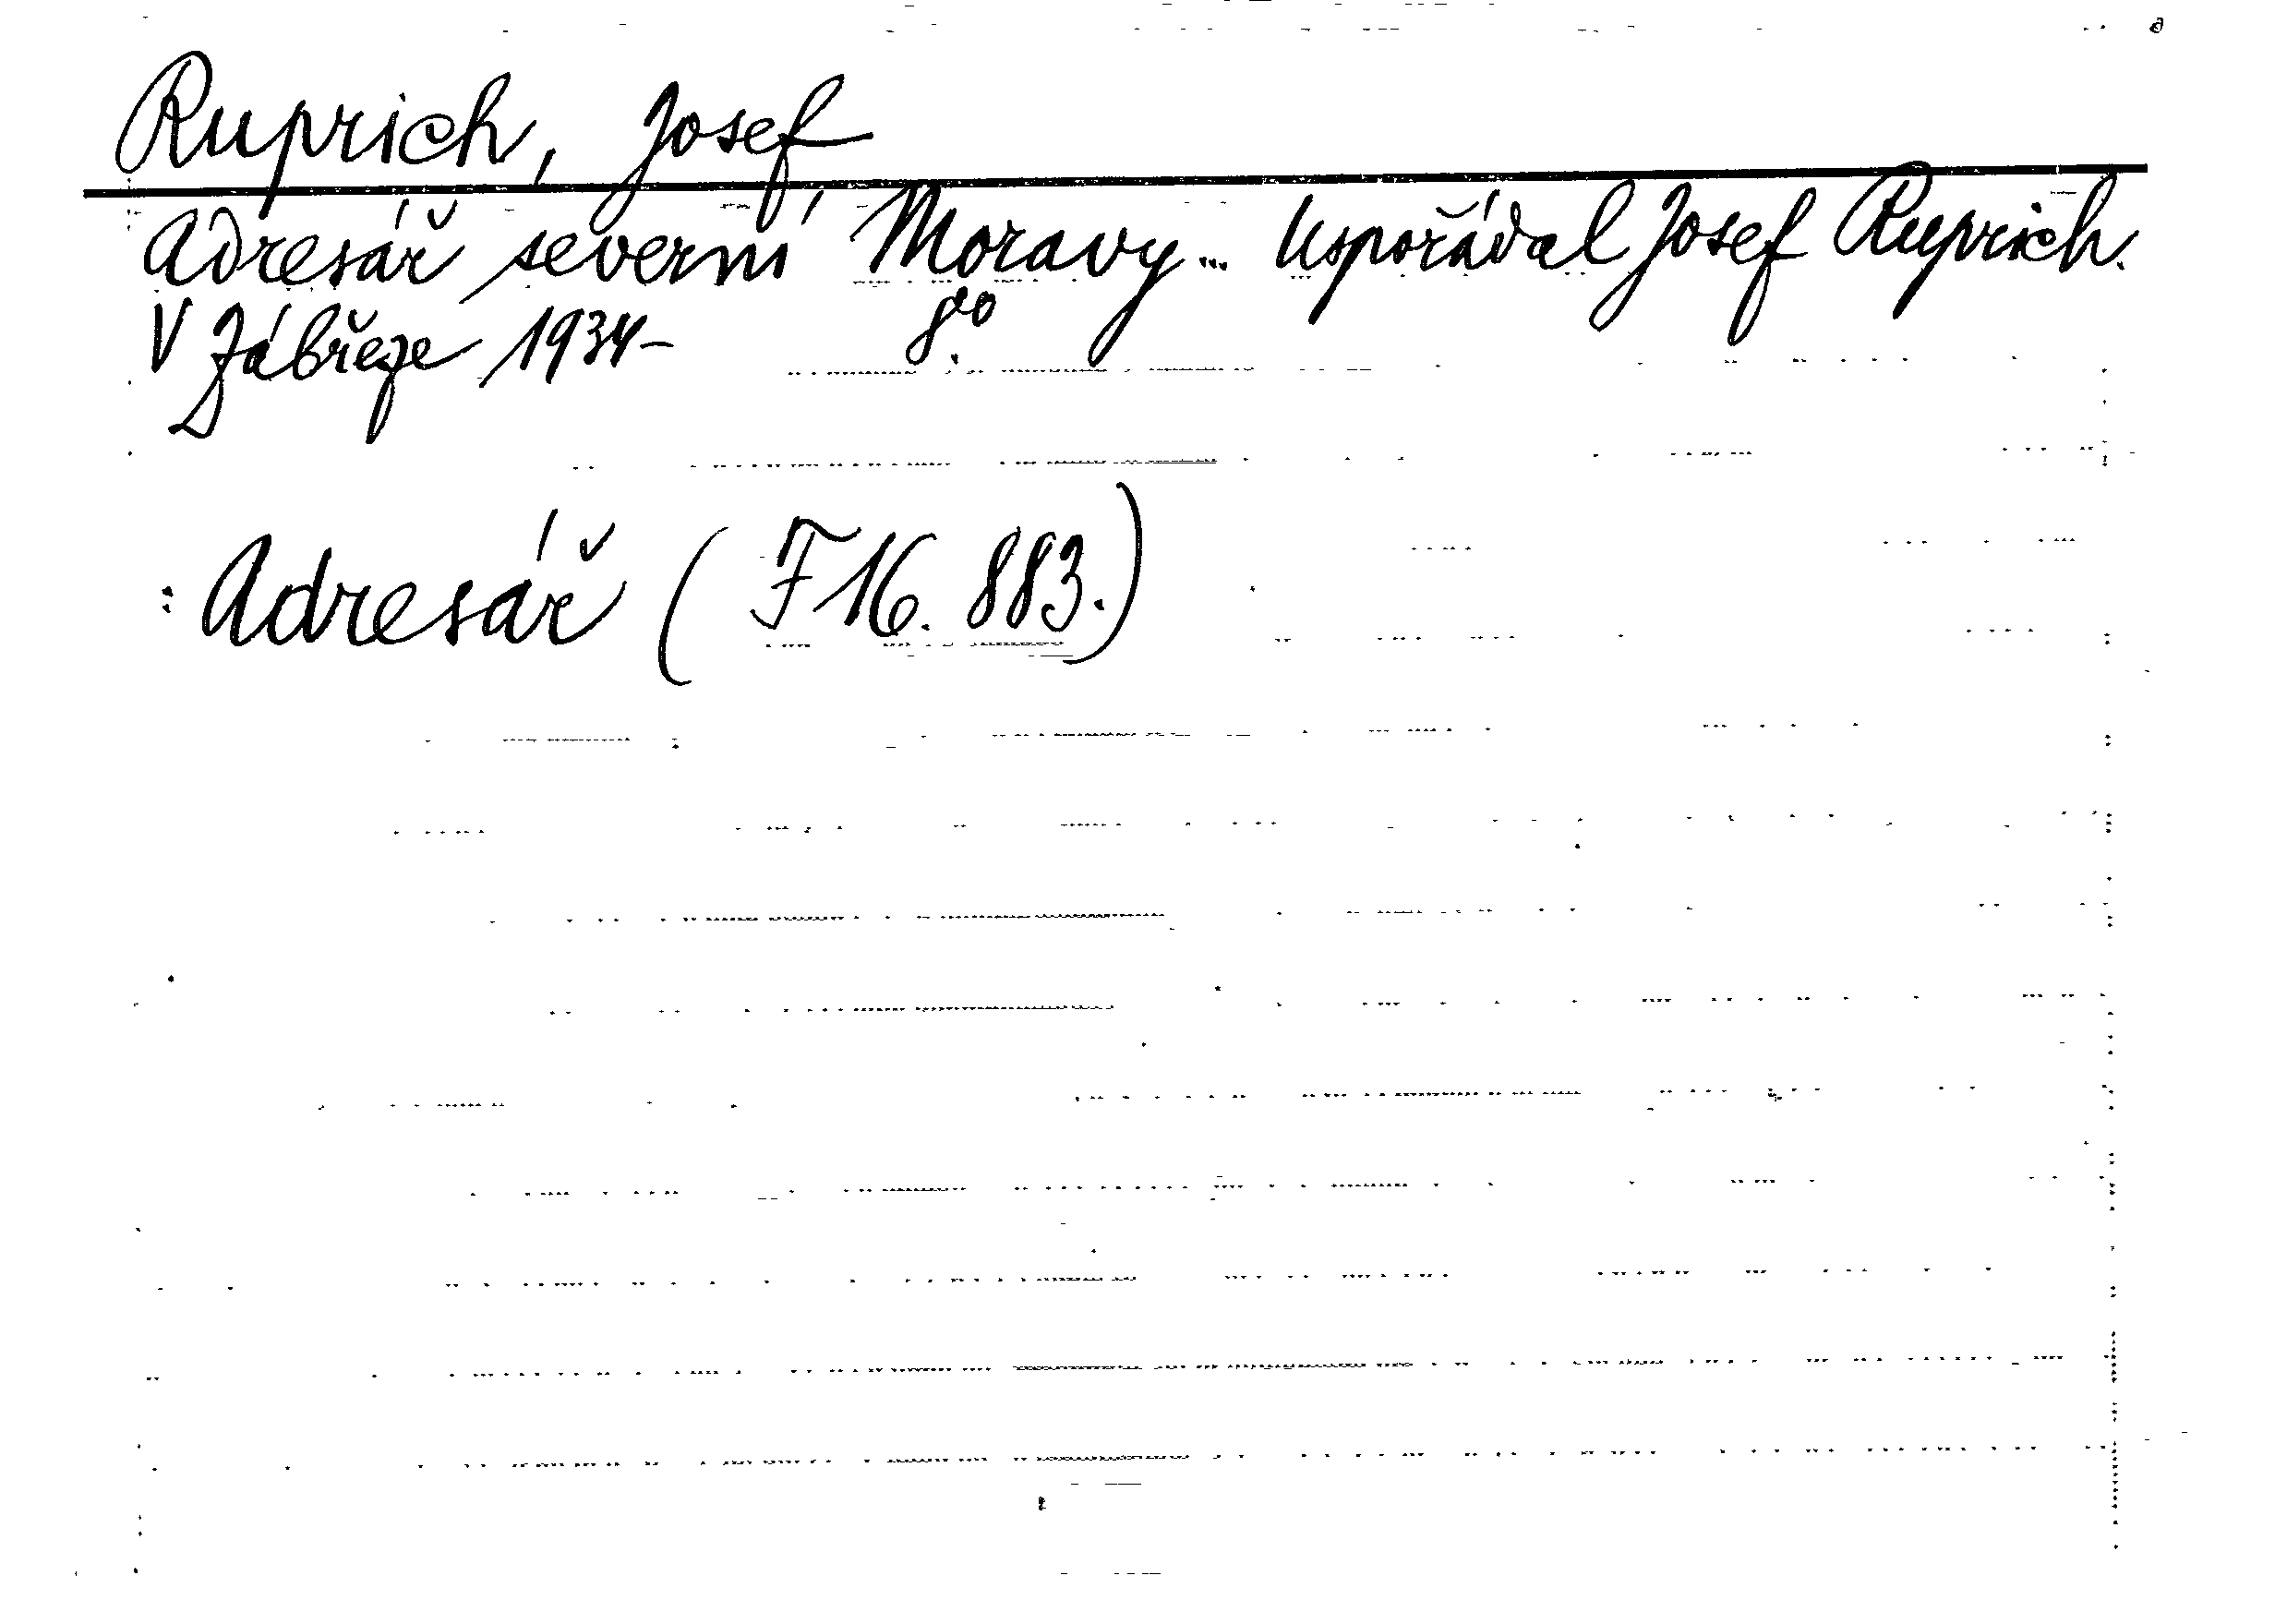 Ruprich, Josef
Adresář severní Moravy... Uspořádal Josef Ruprich.
V Zábřeze 1934- 8°.
: Adresář (F 16. 883.)